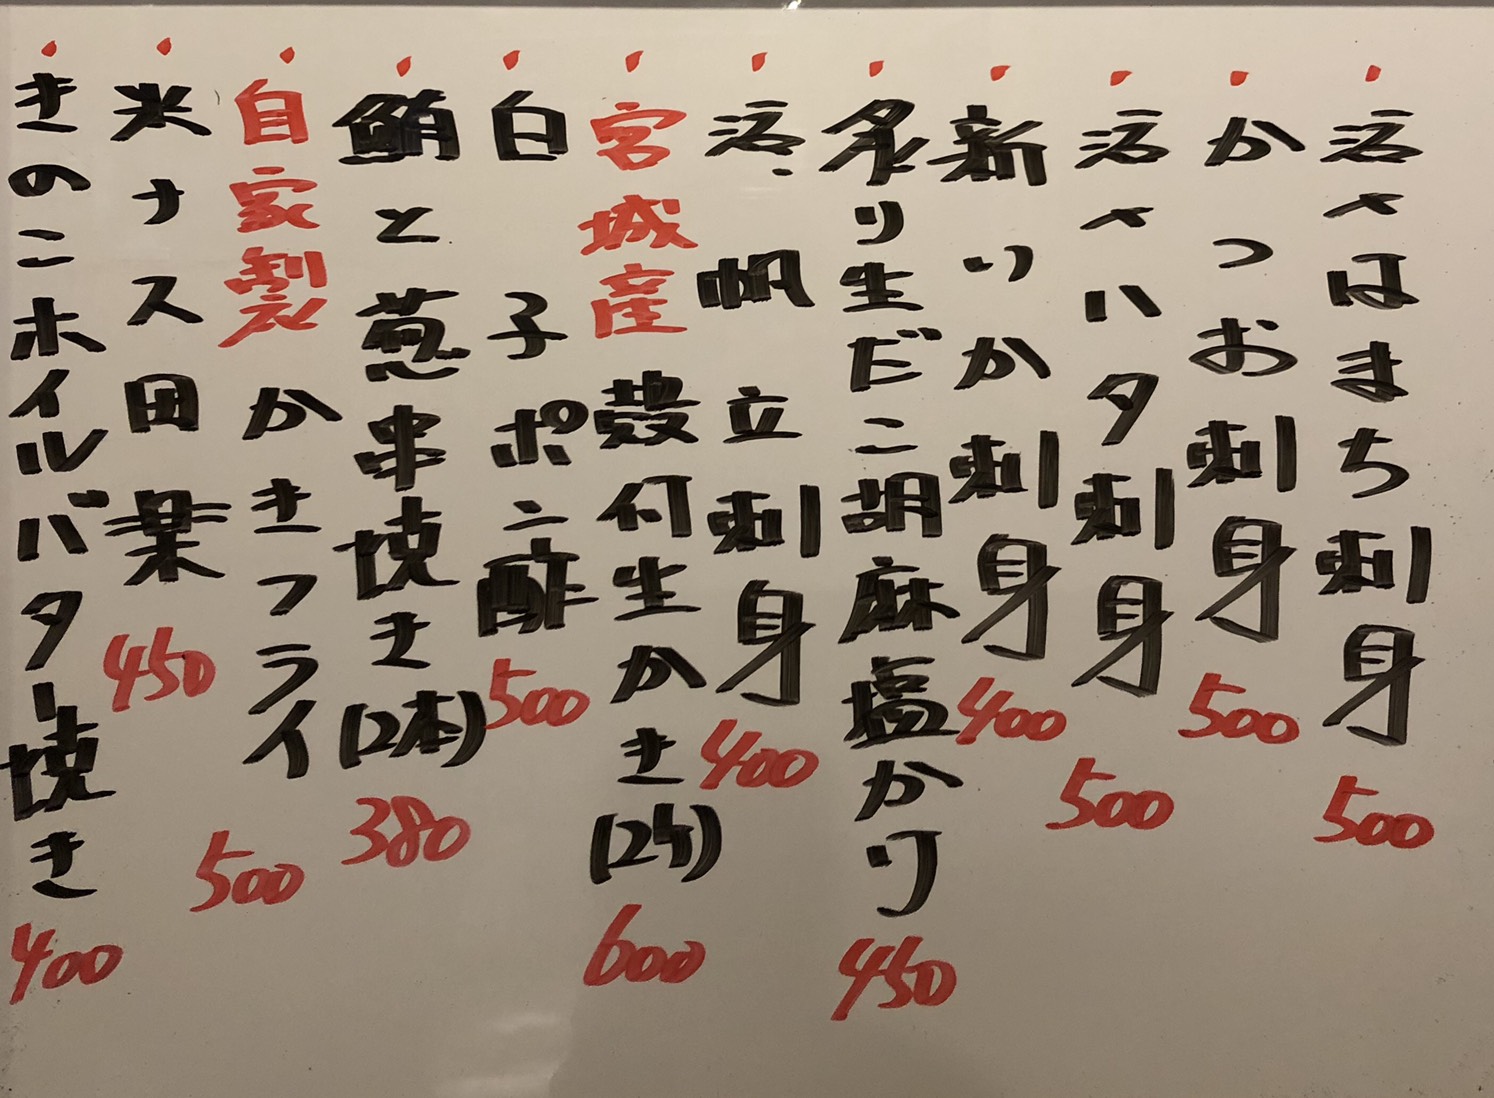 活〆はまち刺身 500
かつお刺身 500
活〆ハタ刺身 500
新いか刺身 400
炙り生だこ胡麻塩かけ 450
活〆帆立刺身 400
宮城産殻付生かき(2ケ) 600
白子ポン酢 500
鮪と葱串焼き(2本) 380
自家製かきフライ 500
米ナス田楽 450
きのこホイルバター焼き 400